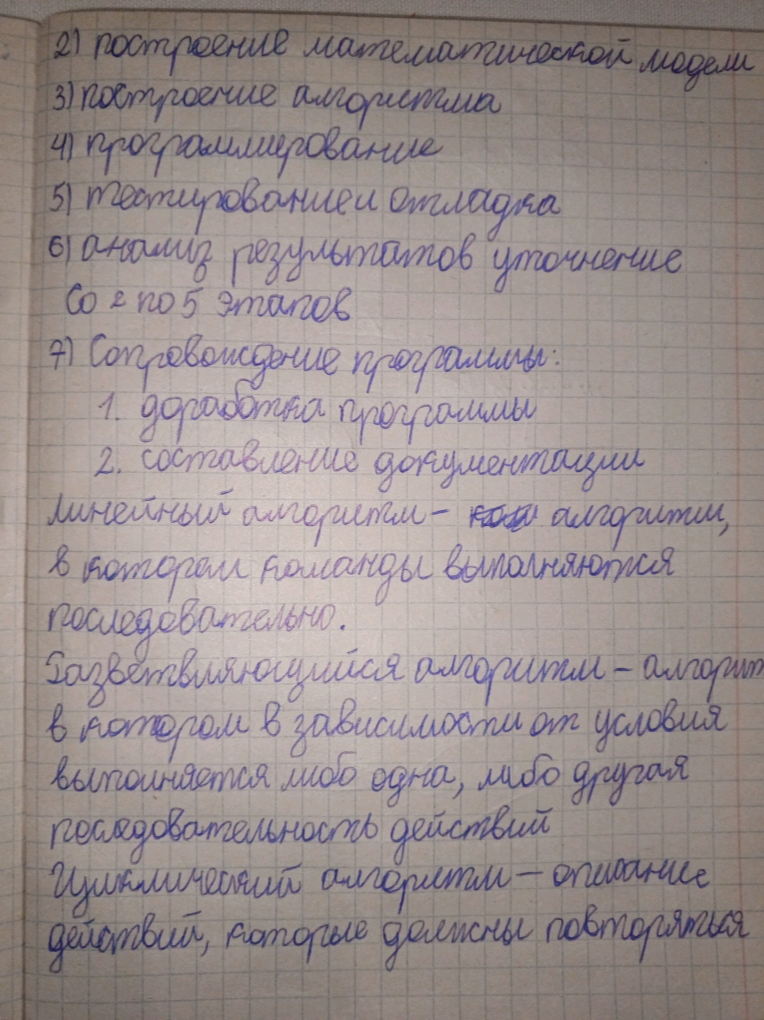 2) построение математической модели
3) построение алгоритма
4) программирование
5) тестирование и отладка
6) анализ результатов уточнение
Со 2 по 5 этапов
7) Сопровождение программы:
1. доработка программы
2. составление документации
Линейный алгоритм – алгоритм,
в котором команды выполняются
последовательно.
Разветвляющийся алгоритм – алгорит
в котором в зависимости от условия
выполняется либо одна, либо другая
последовательность действий
Циклический алгоритм – описание
действий, которые должны повторяться